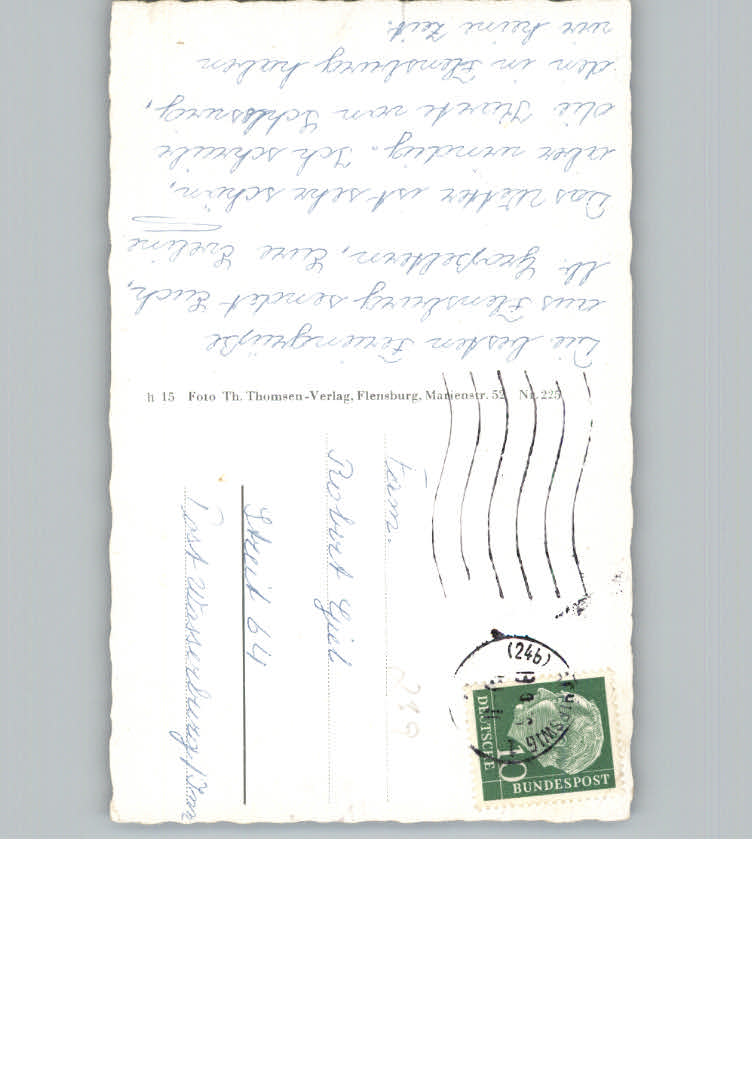 Die besten Feriengrüße
aus Flensburg sendet Euch,
lb. Großeltern, Eure Eveline
Das Wetter ist sehr schön,
aber windig. Ich schreibe
die Karte von Schleswig,
den in Flensburg haben
wir keine Zeit.
h 15 Foto Th. Thomsen-Verlag, Flensburg, Marienstr. 52 Nr. 225
Fam.
Robert
Streit 64
Post Wasserburg / Inn
(24b)
SCHLESWIG
DEUTSCHE
10
BUNDESPOST